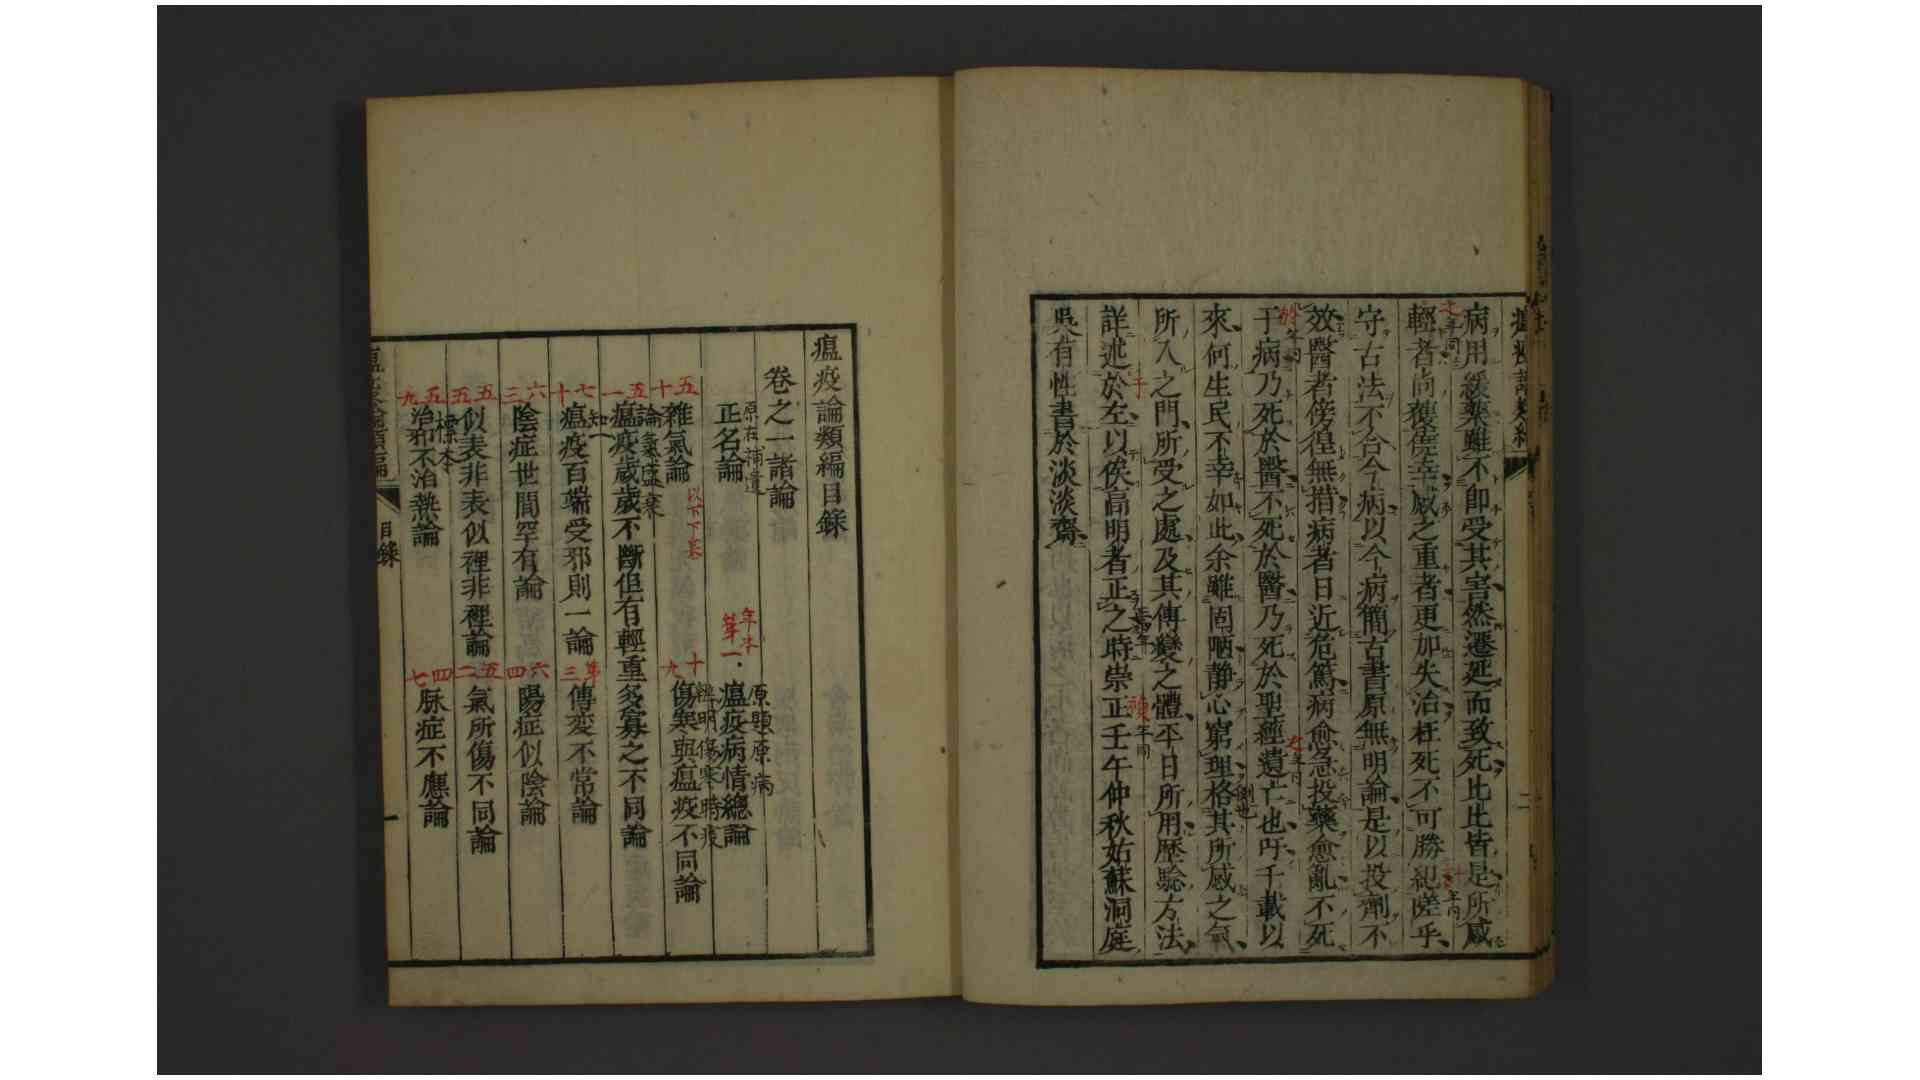 病用緩藥雖不卽受其害然遷延而致死比比皆是所感
輕者尚獲僥幸感之重者更加失治枉死不可勝紀嗟乎
守古法不合今病以今病簡古書原無明論是以投劑不
效醫者傍徨無措病者日近危篤病愈急投藥愈亂不死
于病乃死於醫不死於醫乃死於聖經遺亡也吁千載以
來何生民不幸如此余雖固陋静心窮理格其所感之氣
所入之門所受之處及其傳變之體平日所用歷驗方法
詳述於左以俟高明者正之時崇正壬午仲秋姑蘇洞庭
吳有性書於淡淡齋
瘟疫論類編目錄
卷之一諸論
原在補遺
正名論
年本
第一
原題原病
瘟疫病情總論
五十
雜氣論
以下下卷
十九
辨明傷寒時疫
傷寒與瘟疫不同論
論氣盛衰
五一
瘟疫歲歲不斷但有輕重多寡之不同論
知一
七十
瘟疫百端受邪則一論
第三
傳変不常論
六三
陰症世間罕有論
六四
陽症似陰論
五五
似表非表似裡非裡論
五二
氣所傷不同論
標本
五九
治邪不治熱論
四七
脉症不應論
瘟疫論類編
目錄
一